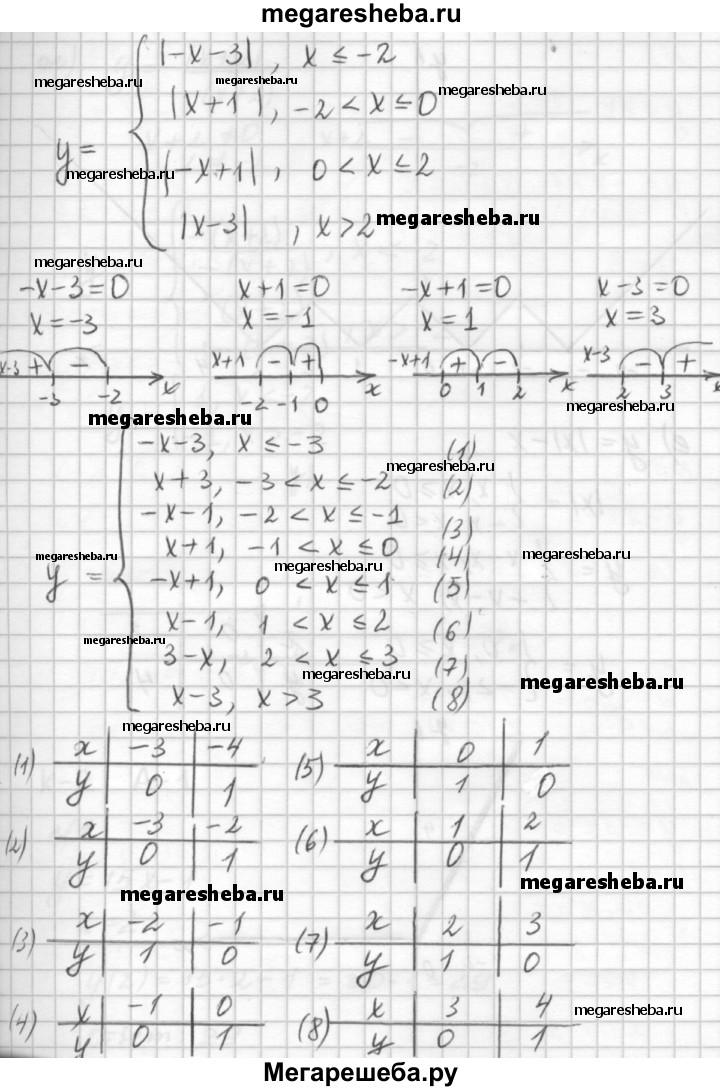 megaresheba.ru
|-x-3|, x ≤ -2
megaresheba.ru megaresheba.ru
|x+1|, -2 < x ≤ 0 megaresheba.ru
y =
megaresheba.ru |-x+1|, 0 < x ≤ 2
|x-3|, x > 2 megaresheba.ru
megaresheba.ru
-x-3=0 x+1=0 -x+1=0 x-3=0
x=-3 x=-1 x=1 x=3
x-3 + - x+1 - + -x+1 + - x-3 - +
-3 -2 x -2 -1 0 x 0 1 2 x 2 3 x
megaresheba.ru megaresheba.ru
-x-3, x ≤ -3 (1)
megaresheba.ru
x+3, -3 < x ≤ -2 (2)
-x-1, -2 < x ≤ -1 (3)
x+1, -1 < x ≤ 0 (4)
megaresheba.ru megaresheba.ru megaresheba.ru
y = -x+1, 0 < x ≤ 1 (5)
x-1, 1 < x ≤ 2 (6)
megaresheba.ru
3-x, 2 < x ≤ 3 (7)
megaresheba.ru megaresheba.ru
x-3, x > 3 (8)
megaresheba.ru
(1) x -3 -4 (5) x 0 1
y 0 1 y 1 0
megaresheba.ru
(2) x -3 -2 (6) x 1 2
y 0 1 y 0 1
megaresheba.ru megaresheba.ru
(3) x -2 -1 (7) x 2 3
y 1 0 y 1 0
(4) x -1 0 (8) x 3 4
megaresheba.ru
y 0 1 y 0 1
Мегарешеба.ру